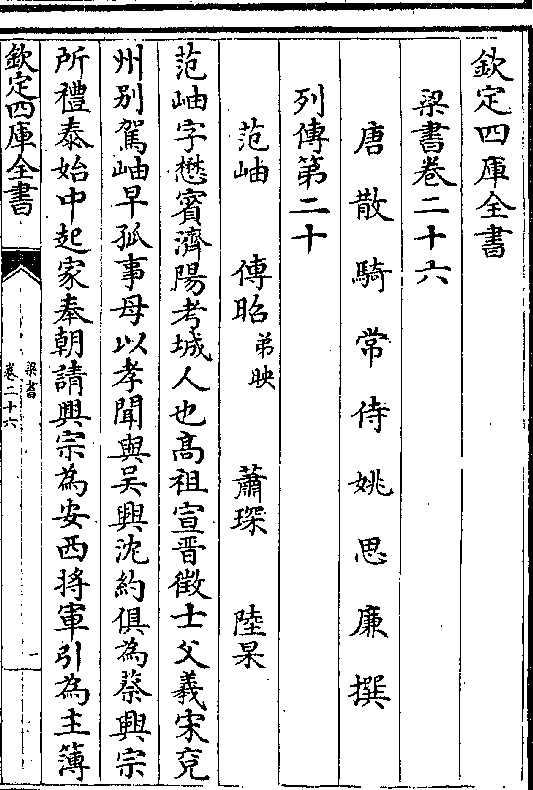 欽定四庫全書
梁書卷二十六
唐散騎常侍姚思廉撰
列傳第二十
范岫 傅昭弟映 蕭琛 陸杲
范岫字懋賓濟陽考城人也高祖宣晉徵士父義宋兗
州别駕岫早孤事母以孝聞與吳興沈約俱為蔡興宗
所禮泰始中起家奉朝請興宗為安西將軍引為主簿
欽定四庫全書
梁書
卷二十六
一